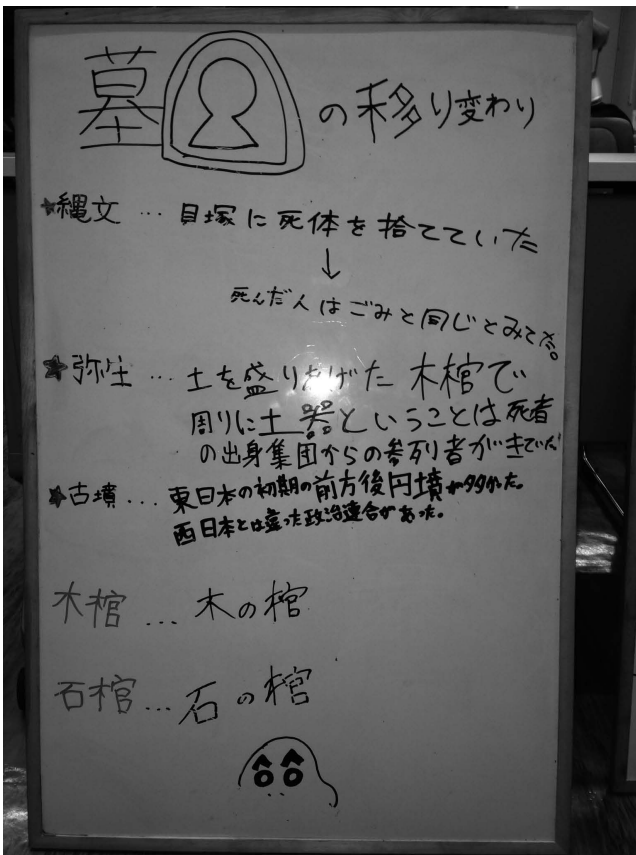 墓の移り変わり
★縄文…貝塚に死体を捨てていた
↓
死んだ人はごみと同じとみてた。
★弥生…土を盛りあげた木棺で
周りに土器ということは死者
の出身集団からの参列者がきてた
★古墳…東日本の初期の前方後円墳が多かった。
西日本とは違った政治連合があった。
木棺…木の棺
石棺…石の棺